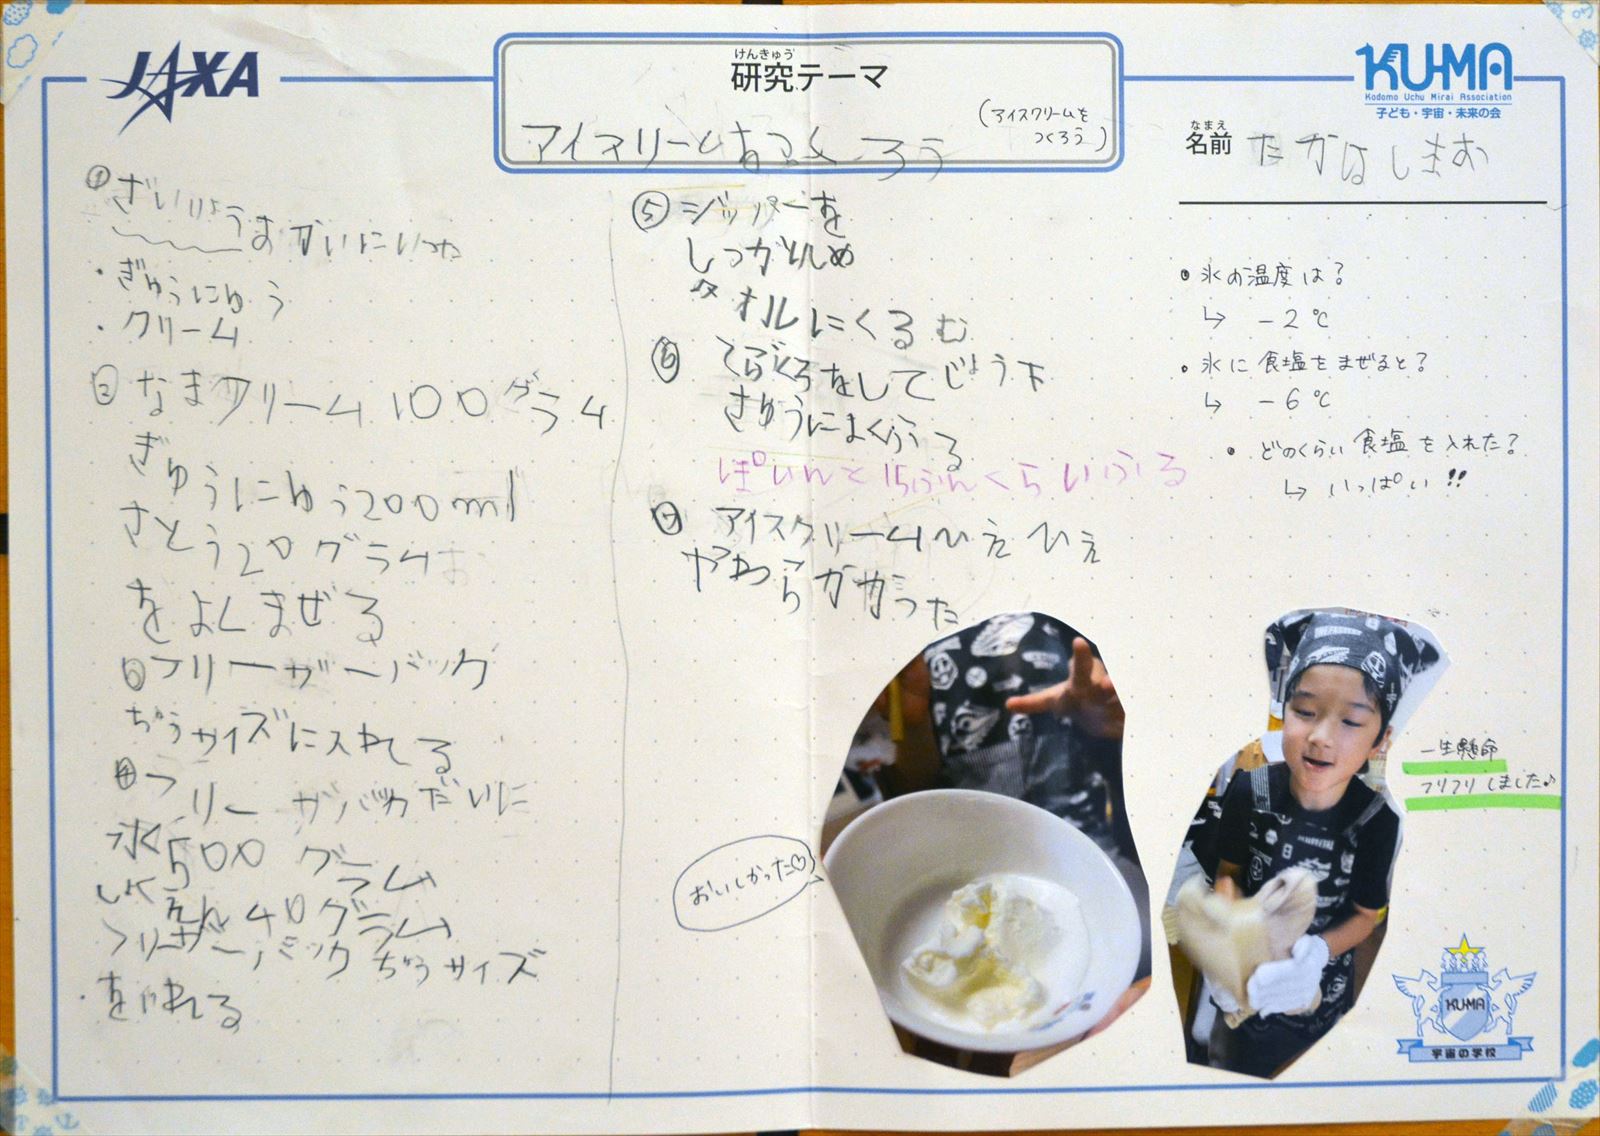 JAXA
けんきゅう
研究テーマ
アイスクリームおつくろう
(アイスクリームを
つくろう)
KU-MA
Kodomo Uchu Mirai Association
子ども・宇宙・未来の会
なまえ
名前 たかはしまお
① ざいりょうおかいにいった
・ぎゅうにゅう
・クリーム
② なまクリーム100グラム
ぎゅうにゅう200ml
さとう20グラムお
をよくまぜる
③ フリーザーバック
ぢうサイズに入れてる
④ フリーザバックだいに
氷500グラム
しょくえん40グラム
フリーザーバック ぢうサイズ
をいれる
⑤ ジッパーを
しっかとしめ
タオルにくるむ
⑥ てぶくろをしてじょう下
さゆうにまくふる
ぽいんと15ふんくらいふる
⑦ アイスクリームひえひえ
やわらかかった
● 氷の温度は?
↳ -2℃
● 氷に食塩をまぜると?
↳ -6℃
● どのくらい食塩を入れた?
↳ いっぱい!!
おいしかった♡
一生懸命
フリフリしました♪
KU-MA
宇宙の学校